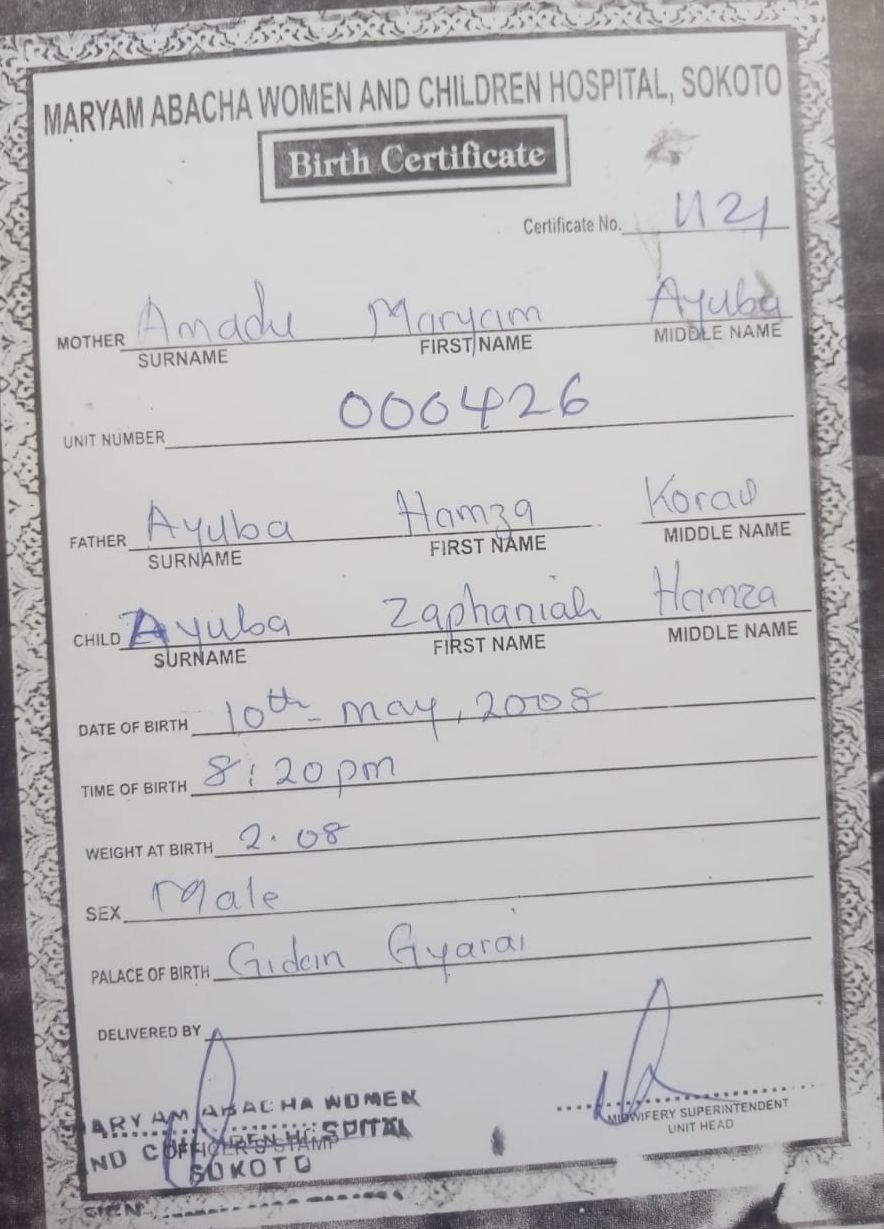 MARYAM ABACHA WOMEN AND CHILDREN HOSPITAL, SOKOTO
Birth Certificate
Certificate No. 1121
MOTHER Amadu Maryam Ayuba
SURNAME FIRST NAME MIDDLE NAME
UNIT NUMBER 000426
FATHER Ayuba Hamza Korau
SURNAME FIRST NAME MIDDLE NAME
CHILD Ayuba Zaphaniah Hamza
SURNAME FIRST NAME MIDDLE NAME
DATE OF BIRTH 10th - May, 2008
TIME OF BIRTH 8:20pm
WEIGHT AT BIRTH 2.08
SEX Male
PALACE OF BIRTH Gidan Gyarai
DELIVERED BY
MARYAM ABACHA WOMEN
AND CHILDREN HOSPITAL
OFFICER'S STAMP
SOKOTO
SIGN
MIDWIFERY SUPERINTENDENT
UNIT HEAD